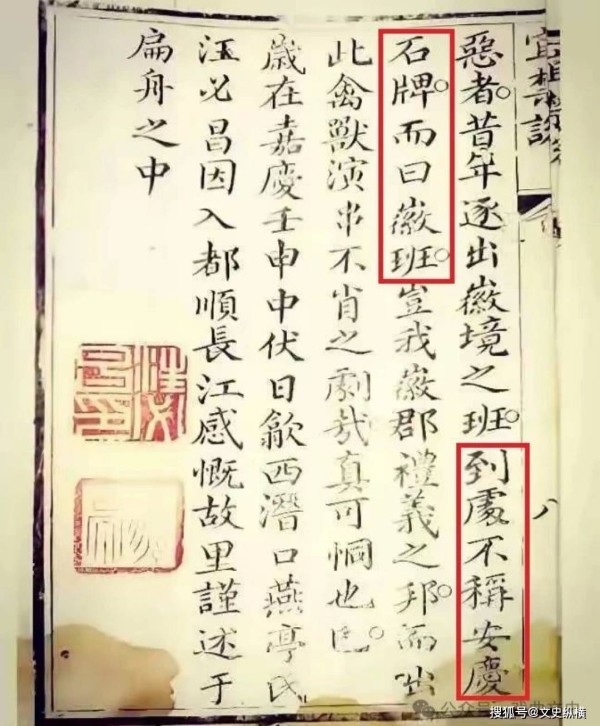 惡者。昔年逐出徽境之班。到處不稱安慶
石牌。而曰徽班。豈我徽郡禮義之邦。而出
此禽獸演串不肖之劇哉真可惘也。已
歲在嘉慶壬申中伏日歙西潛口燕亭氏
汪必昌因入都順長江感慨故里謹述于
扁舟之中
八
公众号
搜狐号@文史纵横